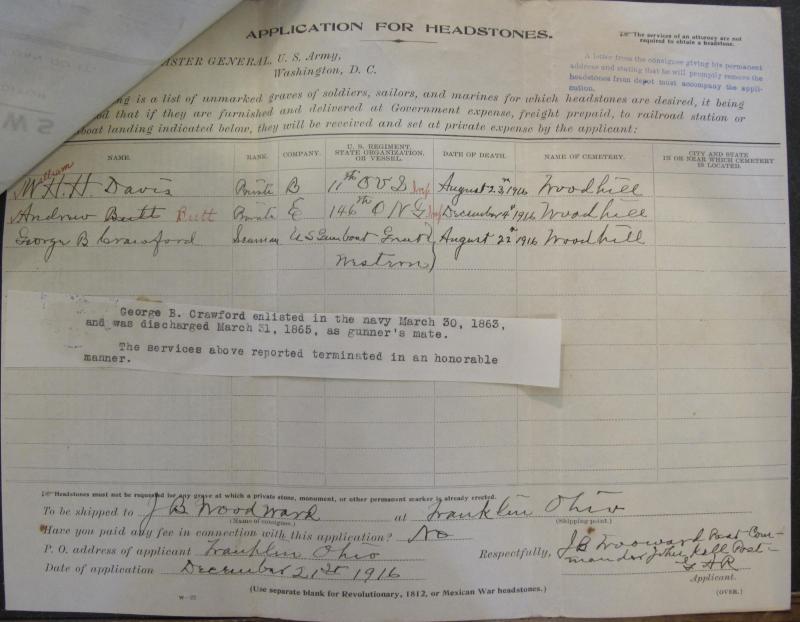 APPLICATION FOR HEADSTONES.
The services of an attorney are not
required to obtain a headstone.
ASTER GENERAL, U. S. Army,
Washington, D. C.
A letter from the consignee giving his permanent
address and stating that he will promptly remove the
headstones from depot must accompany the appli-
cation.
ng is a list of unmarked graves of soldiers, sailors, and marines for which headstones are desired, it being
od that if they are furnished and delivered at Government expense, freight prepaid, to railroad station or
boat landing indicated below, they will be received and set at private expense by the applicant:
NAME. RANK. COMPANY. U. S. REGIMENT, STATE ORGANIZATION, OR VESSEL. DATE OF DEATH. NAME OF CEMETERY. CITY AND STATE IN OR NEAR WHICH CEMETERY IS LOCATED.
William
W. H. H. Davis Private B 11th O V I Inf August 23rd 1916 Woodhill
Andrew Butt Butt Private E 146th O N G Inf December 4th 1916 Woodhill
George B Crawford Seaman U S Gunboat Great August 22nd 1916 Woodhill
Western
George B. Crawford enlisted in the navy March 30, 1863,
and was discharged March 31, 1865, as gunner's mate.
The services above reported terminated in an honorable
manner.
Headstones must not be requested for any grave at which a private stone, monument, or other permanent marker is already erected.
To be shipped to J B Woodward at Franklin Ohio
(Name of consignee.) (Shipping point.)
Have you paid any fee in connection with this application? No
P. O. address of applicant Franklin Ohio
Respectfully, J B Wooward Post Com-
mander John Kell Post-
G A R
Applicant.
Date of application December 21st 1916
W-22
(Use separate blank for Revolutionary, 1812, or Mexican War headstones.)
(OVER.)